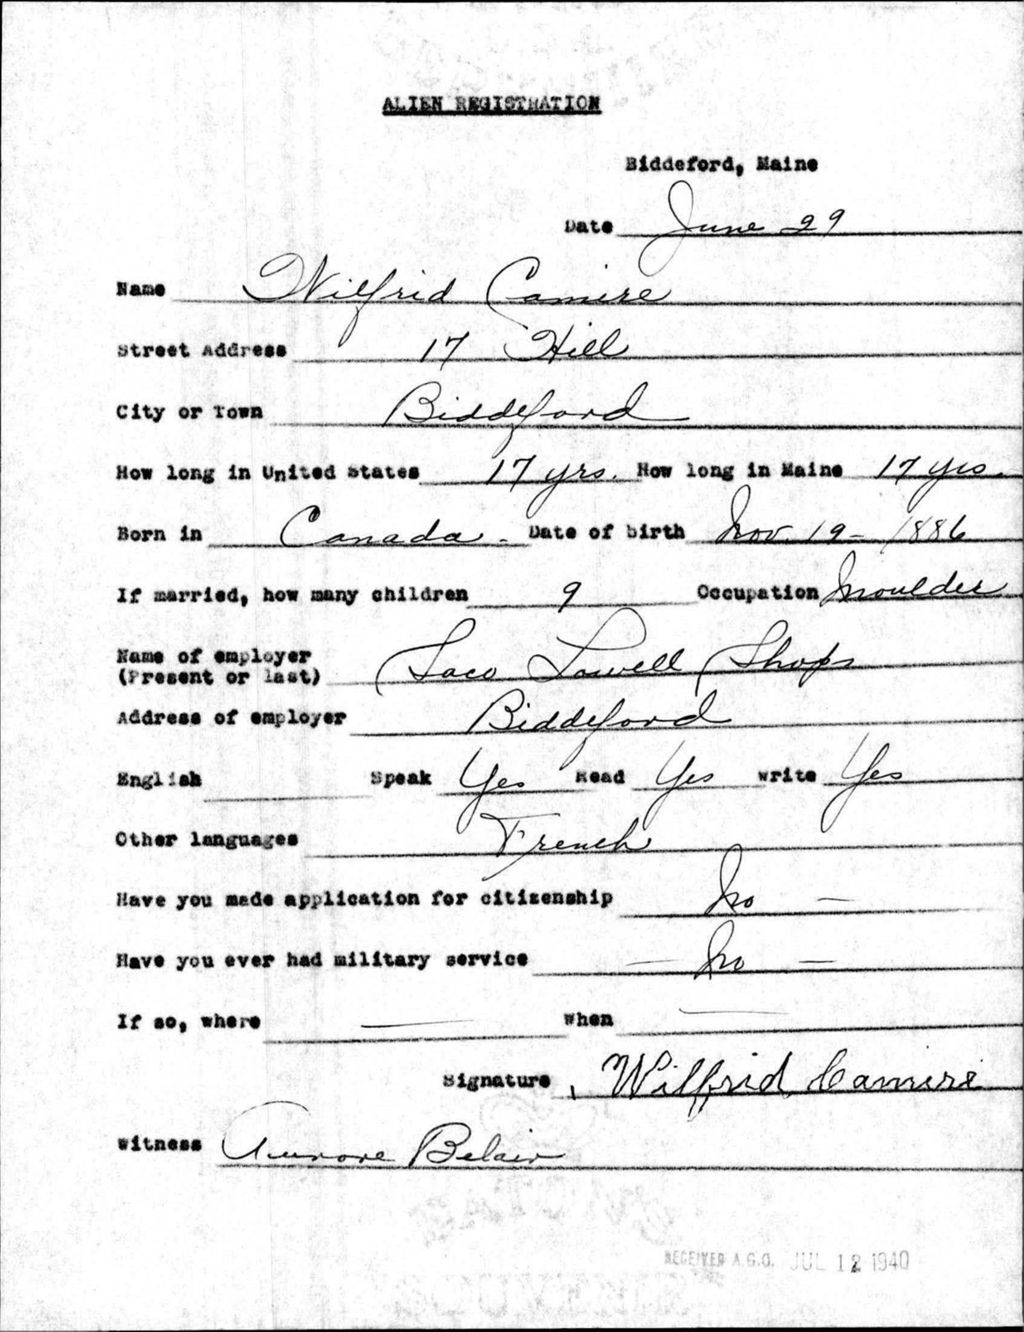 ALIEN REGISTRATION
Biddeford, Maine
Date June 29
Name Wilfrid Camire
Street Address 17 Hill
City or Town Biddeford
How long in United States 17 yrs. How long in Maine 17 yrs.
Born in Canada - Date of birth Nov 19 - 1886
If married, how many children 9 Occupation Moulder
Name of employer
(Present or last) Saco Lowell Shops
Address of employer Biddeford
English Speak Yes Read Yes Write Yes
Other languages French
Have you made application for citizenship No -
Have you ever had military service - No -
If so, where — When —
Signature Wilfrid Camire
Witness Aurore Belair
RECEIVED A.G.O. JUL 12 1940